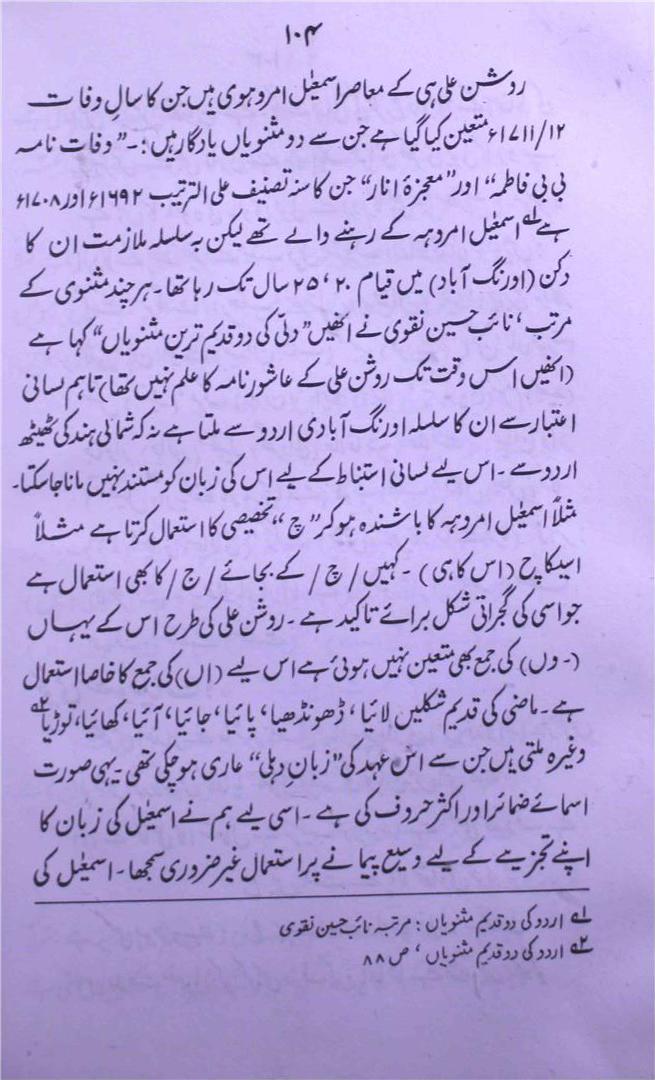 ۱۰۴
روشن علی ہی کے معاصر اسمعیل امروہوی ہیں جن کا سالِ وفات
۶۱۷۱۱/۱۲ متعین کیا گیا ہے جن سے دو مثنویاں یادگار ہیں: ۔ "وفات نامہ
بی بی فاطمہ" اور "معجزۂ انار" جن کا سنہ تصنیف علی الترتیب ۶۱۶۹۲ اور ۶۱۷۰۸
ہے۱؎ اسمعیل امروہہ کے رہنے والے تھے لیکن بہ سلسلہ ملازمت ان کا
دکن (اورنگ آباد) میں قیام ۲۰، ۲۵ سال تک رہا تھا۔ ہر چند مثنوی کے
مرتب، نائب حسین نقوی نے انھیں "دلّی کی دو قدیم ترین مثنویاں" کہا ہے
(انھیں اس وقت تک روشن علی کے عاشور نامہ کا علم نہیں تھا) تاہم لسانی
اعتبار سے ان کا سلسلہ اورنگ آبادی اردو سے ملتا ہے نہ کہ شمالی ہند کی ٹھیٹھ
اردو سے۔ اس لیے لسانی استنباط کے لیے اس کی زبان کو مستند نہیں مانا جا سکتا۔
مثلاً اسمعیل امروہہ کا باشندہ ہو کر "چ" تخصیصی کا استعمال کرتا ہے مثلاً
اسیکاچ (اس کا ہی)۔ کہیں /چ/ کے بجائے /ج/ کا بھی استعمال ہے
جو اسی کی گجراتی شکل برائے تاکید ہے۔ روشن علی کی طرح اس کے یہاں
(-وں) کی جمع بھی متعین نہیں ہوئی ہے اس لیے (اں) کی جمع کا خاصا استعمال
ہے۔ ماضی کی قدیم شکلیں لائیا، ڈھونڈھیا، پائیا، جائیا، آئیا، کھائیا، توڑیا۲؎
وغیرہ ملتی ہیں جن سے اس عہد کی "زبانِ دہلی" عاری ہو چکی تھی۔ یہی صورت
اسمائے ضمائر اور اکثر حروف کی ہے۔ اسی لیے ہم نے اسمعیل کی زبان کا
اپنے تجزیے کے لیے وسیع پیمانے پر استعمال غیر ضروری سمجھا۔ اسمعیل کی
۱؎ اردو کی دو قدیم مثنویاں: مرتبہ نائب حسین نقوی
۲؎ اردو کی دو قدیم مثنویاں، ص ۸۸